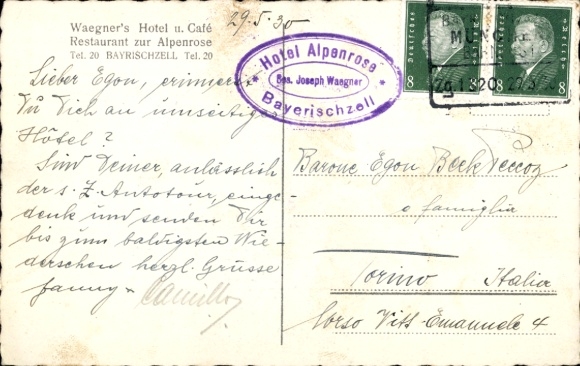 Waegner's Hotel u. Café
Restaurant zur Alpenrose
Tel. 20 BAYRISCHZELL Tel. 20
29.5.30
Lieber Egon, erinnerst
Du Dich an umseitiges
Hôtel?
Sind Deiner, anlässlich
der s. Z. Autotour, einge-
denk und senden Dir
bis zum baldigsten Wie-
dersehen herzl. Grüsse
Fanny - Camillo
* Hotel Alpenrose *
Bes. Joseph Waegner
Bayerischzell
Deutsches
8 8
Deutsches
8 8
20
Barone Egon Beck Peccoz
e famiglia
Torino Italia
Corso Vitt. Emanuele 4